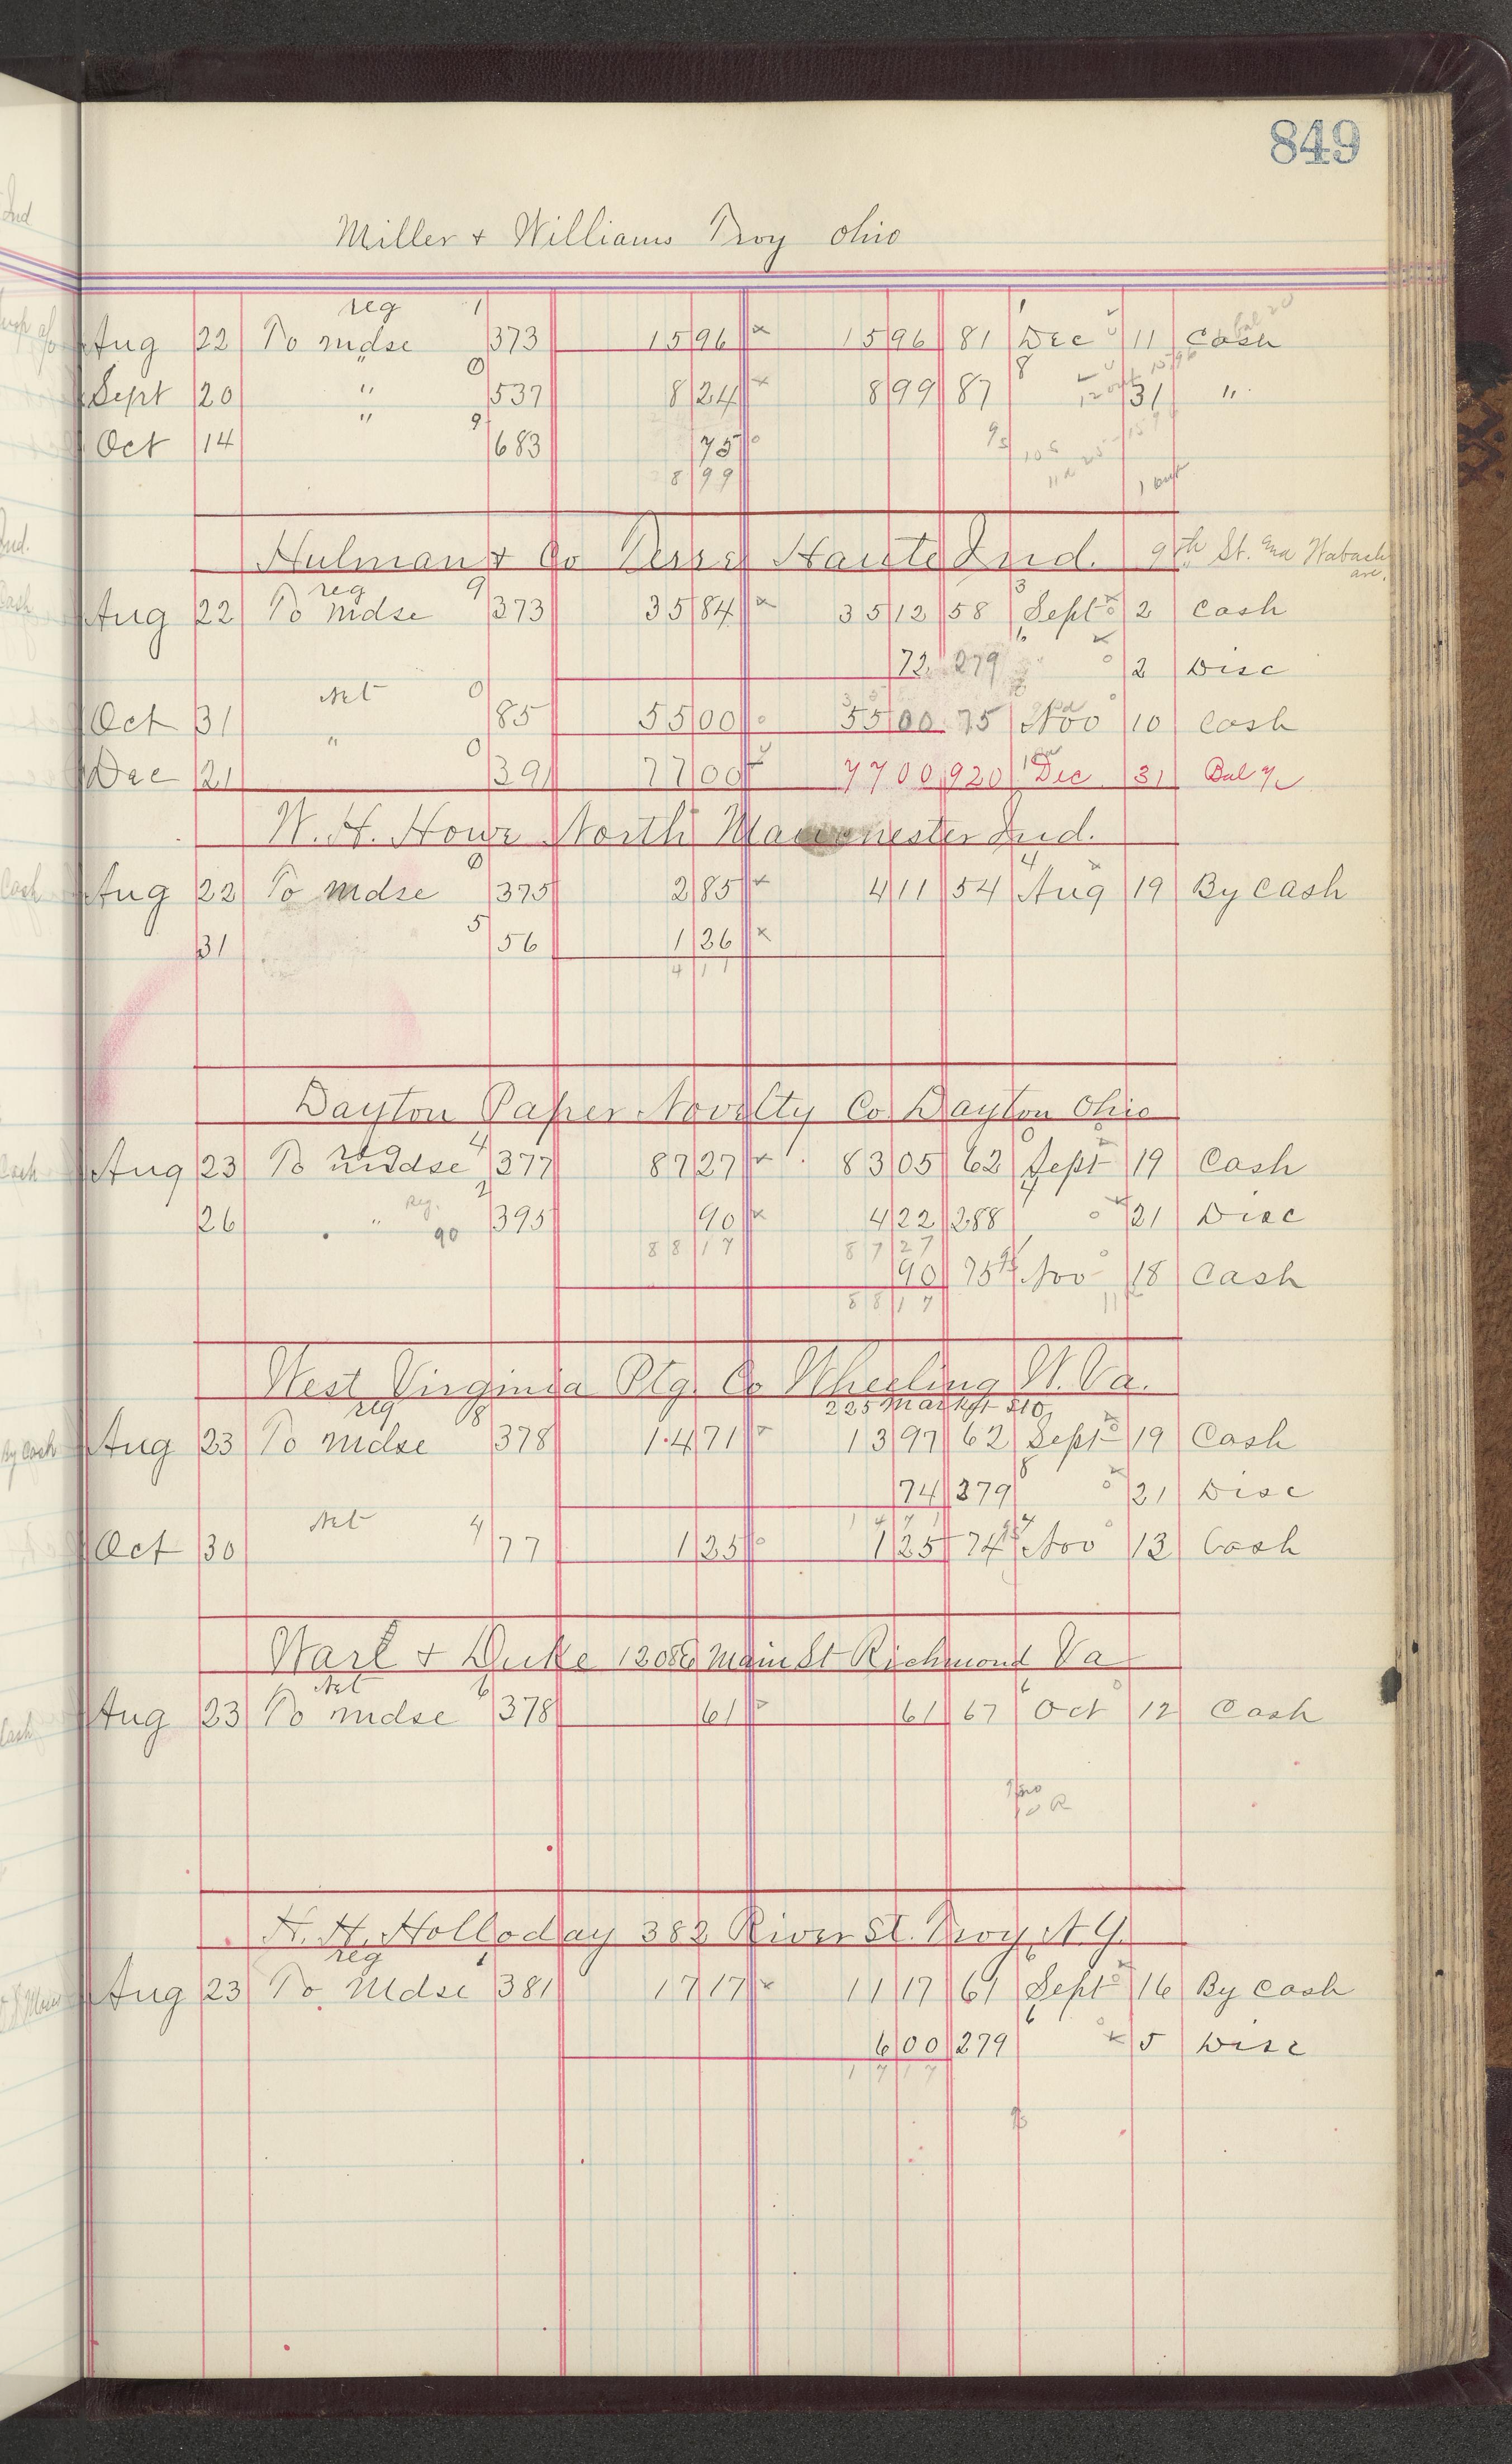 849
Miller + Williams Troy Ohio
reg 1 1
Aug 22 To mdse 373 15 96 x 15 96 81 Dec 11 Cash
Sept 20 " 0 537 8 24 x 8 99 87 8 31 "
Oct 14 " 9 683 75 o
8 99 1 out
Hulman + Co Terre Haute Ind. 9th St. and Wabash ave.
reg 9 3
Aug 22 To mdse 373 35 84 x 35 12 58 Sept 2 Cash
72 279 2 Disc
Oct 31 Net 0 85 55 00 o 55 00 75 Nov 10 Cash
Dec 21 " 0 391 77 00 77 00 920 Dec 31 Bal
W. H. Howe North Manchester Ind.
0 4
Aug 22 To mdse 375 2 85 x 4 11 54 Aug 19 By Cash
31 5 56 1 26 x
4 11
Dayton Paper Novelty Co Dayton Ohio
reg 4 0
Aug 23 To mdse 377 87 27 x 83 05 62 Sept 19 Cash
26 " Reg. 90 2 395 90 x 4 22 288 4 21 Disc
88 17 87 27
90 75 Nov 18 Cash
88 17
West Virginia Ptg Co Wheeling W. Va.
reg 8 225 Market
Aug 23 To mdse 378 14 71 13 97 62 Sept 19 Cash
74 279 8 21 Disc
14 71
Oct 30 Net 4 77 1 25 o 1 25 74 Nov 13 Cash
Warl + Duke 1208 E Main St Richmond Va
Net 6 6
Aug 23 To mdse 378 61 61 67 Oct 12 Cash
H. H. Holloday 382 River St. Troy N. Y.
reg 1 6
Aug 23 To Mdse 381 17 17 x 11 17 61 Sept 16 By Cash
6 00 279 6 5 Disc
17 17